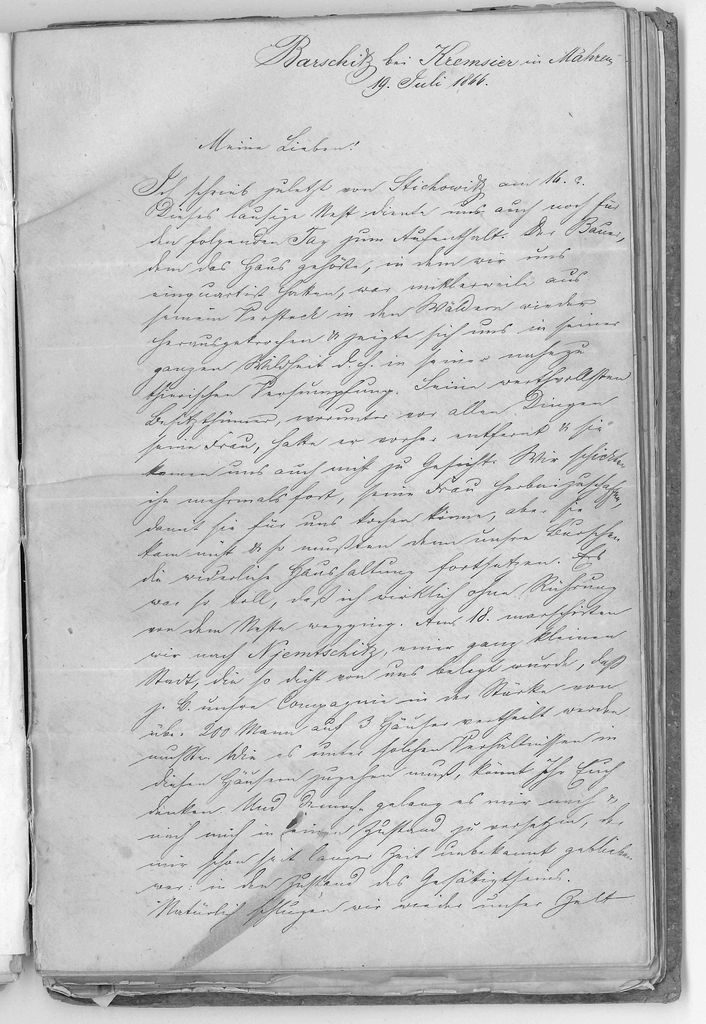 Barschitz bei Kremsier in Mähren
19. Juli 1866.
Meine Lieben!
Ich schrieb zuletzt von Stichowitz am 16. d.
Dieses lausige Nest diente uns auch noch für
den folgenden Tag zum Aufenthalt. Der Bauer,
dem das Haus gehörte, in dem wir uns
einquartirt hatten, war mittlerweile aus
seinem Versteck in den Wäldern wieder
herausgekrochen & zeigte sich uns in seiner
ganzen Wildheit d. h. in seiner nahezu
thierischen Versumpfung. Seine werthvollsten
Besitzthümer, worunter vor allen Dingen
seine Frau, hatte er vorher entfernt & sie
kamen uns auch nicht zu Gesicht. Wir schickten
ihn mehrmals fort, seine Frau herbeizuschaffen,
damit sie für uns kochen könne, aber sie
kam nicht & so mußten denn unsre Burschen
die widerliche Haushaltung fortsetzen. Es
war so toll, daß ich wirklich ohne Rührung
von dem Neste wegging. Am 18. marschirten
wir nach Njemtschitz, einer ganz kleinen
Stadt, die so dicht von uns belegt wurde, daß
z. B. unsre Compagnie in der Stärke von
üb. 200 Mann auf 3 Häuser vertheilt werden
mußte. Wie es unter solchen Verhältnissen in
diesen Häusern zugehen muß, könnt Ihr Euch
denken. Und dennoch gelang es mir auch
mich in einen Zustand zu versetzen, der
mir schon seit langer Zeit unbekannt geblieben
war: in den Zustand des Gesättigtseins.
Natürlich schlugen wir wieder unser Zelt